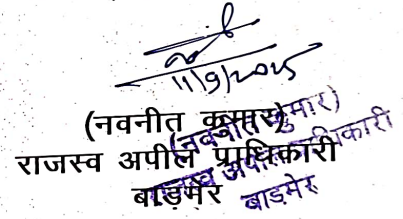 11/9/2025
(नवनीत कुमार)
राजस्व अपील प्राधिकारी
बाड़मेर
(नवनीत कुमार)
राजस्व अपील प्राधिकारी
बाड़मेर